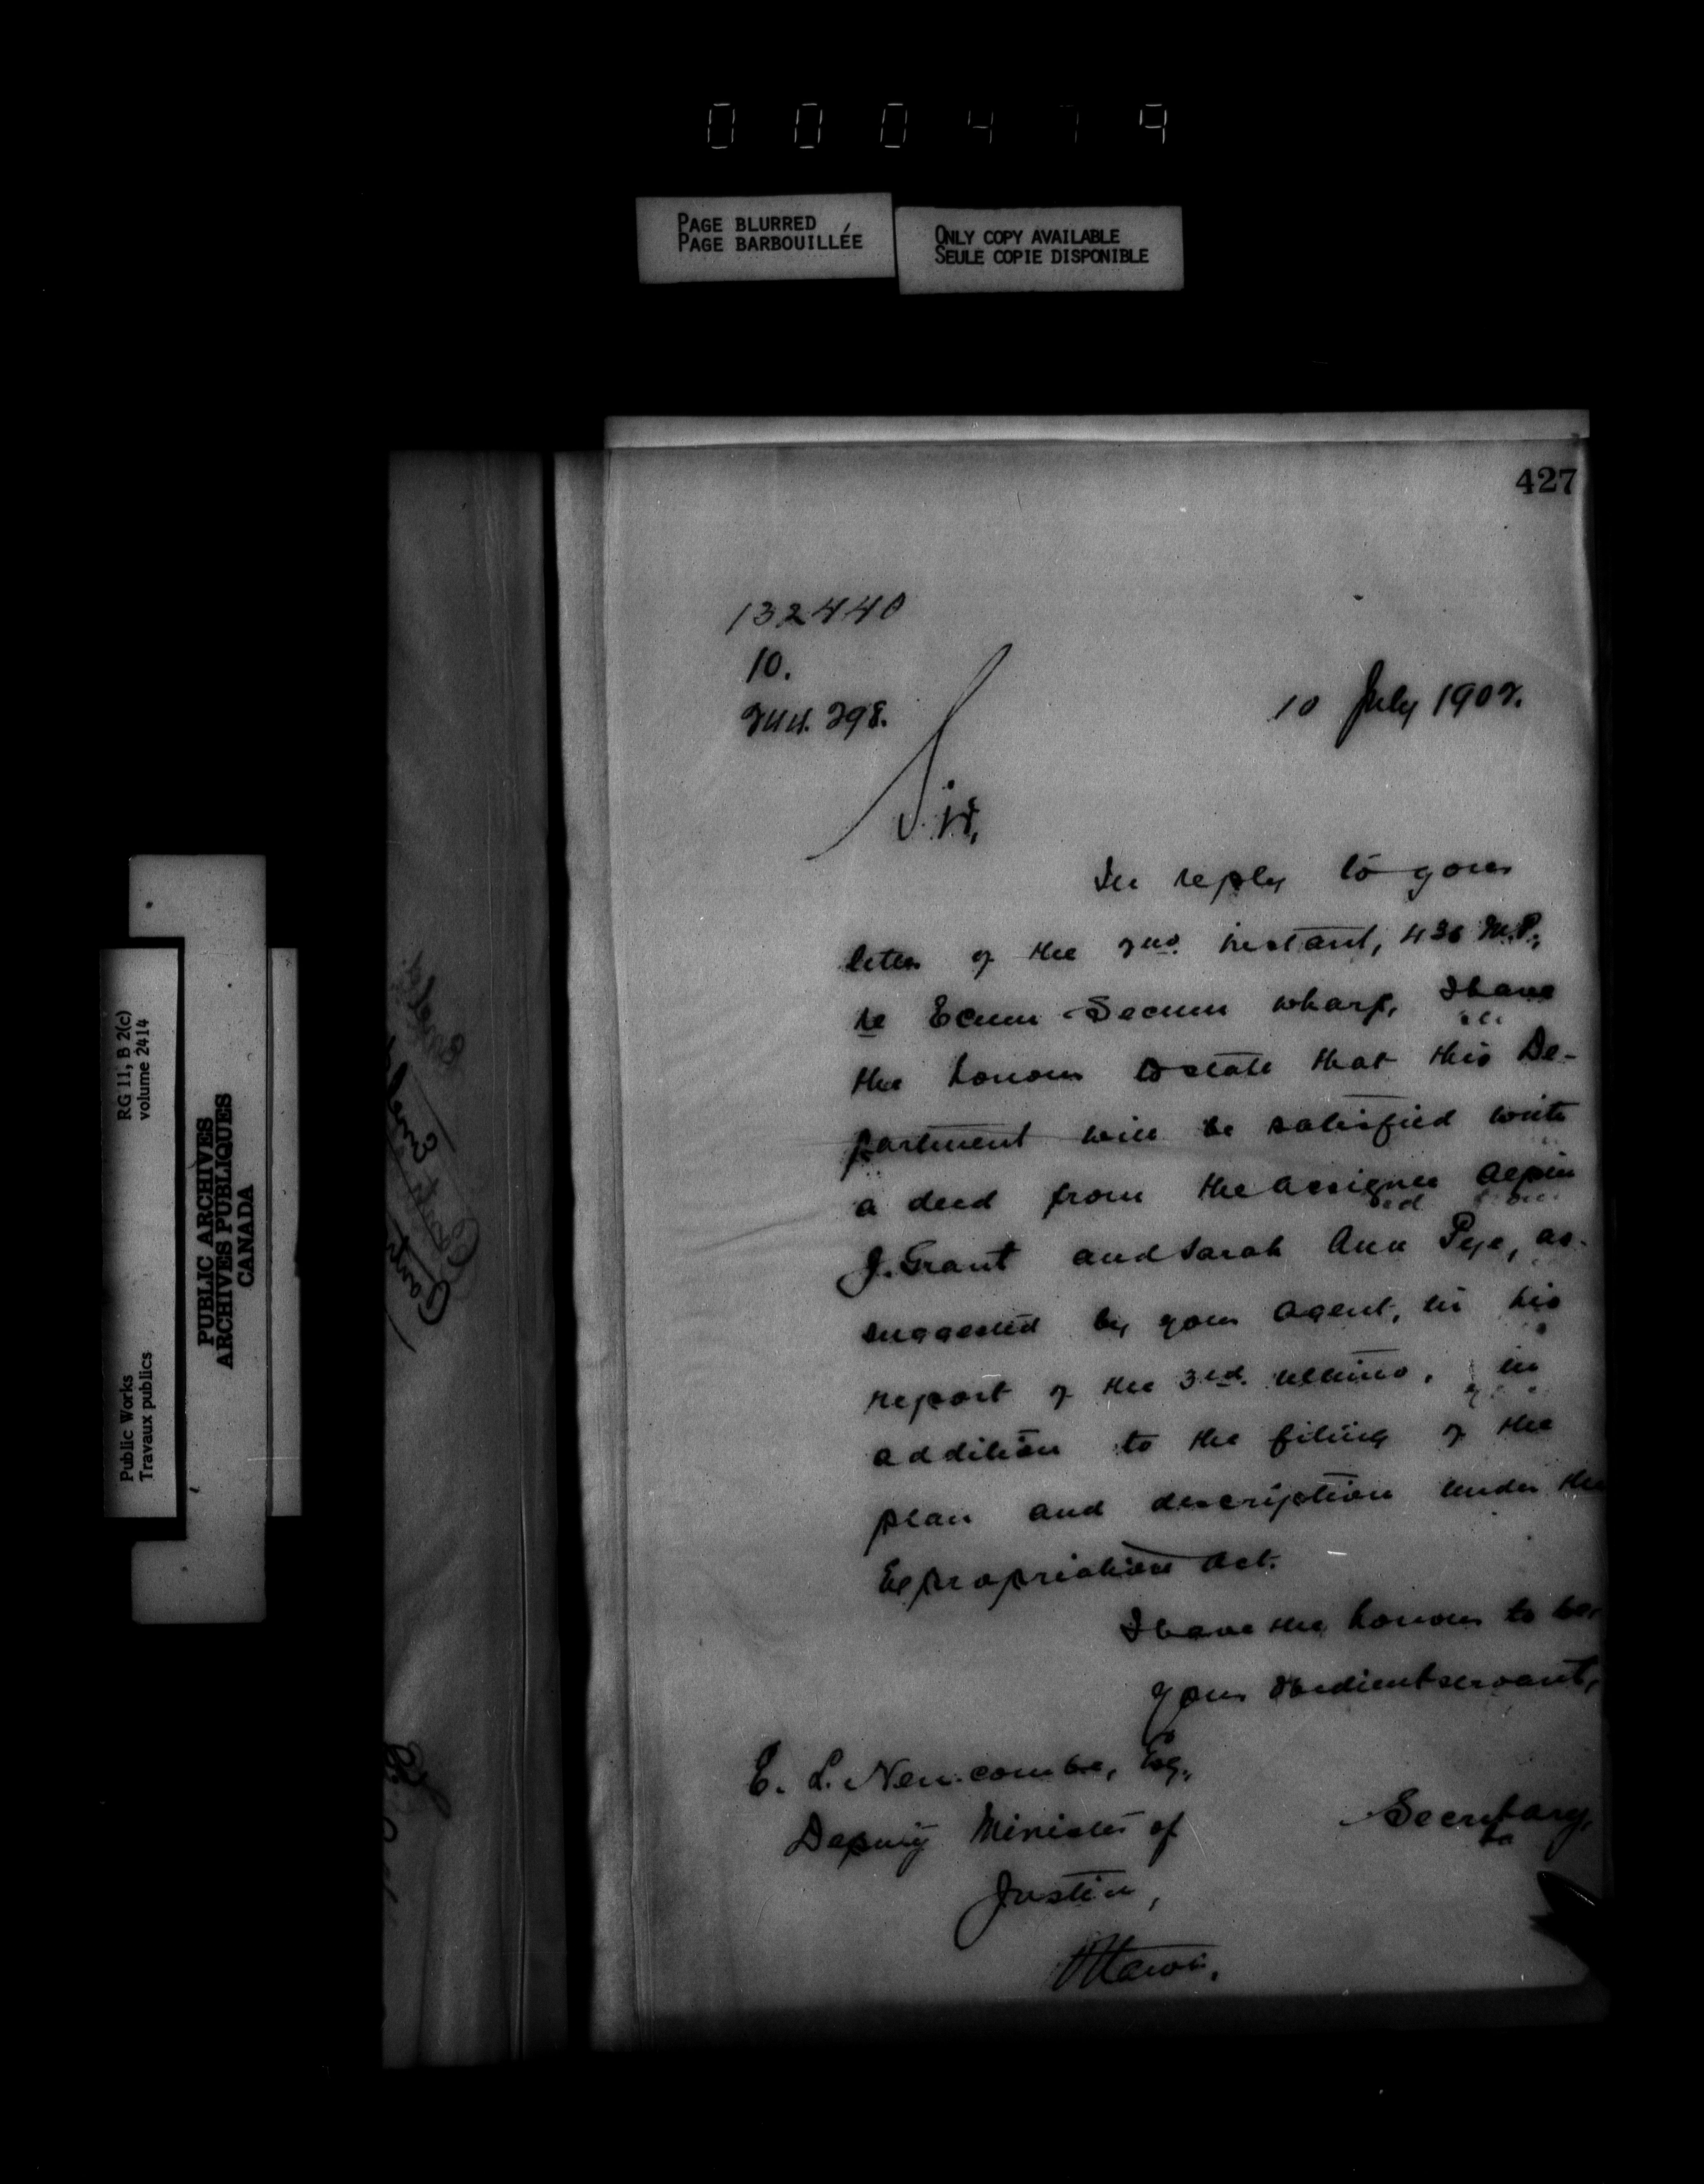 000479
PAGE BLURRED
PAGE BARBOUILLÉE
ONLY COPY AVAILABLE
SEULE COPIE DISPONIBLE
427
132440
10.
298.
10 July 1902.
Sir,
In reply to your
letter of the 2nd. instant, 436 M.P.,
re Ecum Secum wharf, I have
the honour to state that this De-
partment will be satisfied with
a deed from the assignee
J. Grant and Sarah Ann Pye, as
suggested by your agent, in his
report of the 3rd. ultimo, in
addition to the filing of the
plan and description under the
Expropriation Act.
I have the honour to be,
your obedient servant,
E. L. Newcombe, Esq.,
Deputy Minister of
Secretary.
Justice,
Ottawa.
RG 11, B 2(c)
volume 2414
Public Works
Travaux publics
PUBLIC ARCHIVES
ARCHIVES PUBLIQUES
CANADA